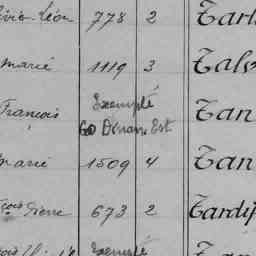 Léon 778 2 Tarl
marie 1119 3 Talv
François Exempté Tan
60 Dinan Est
marie 1509 4 Tan
Pierre 673 2 Tardif
Exempté